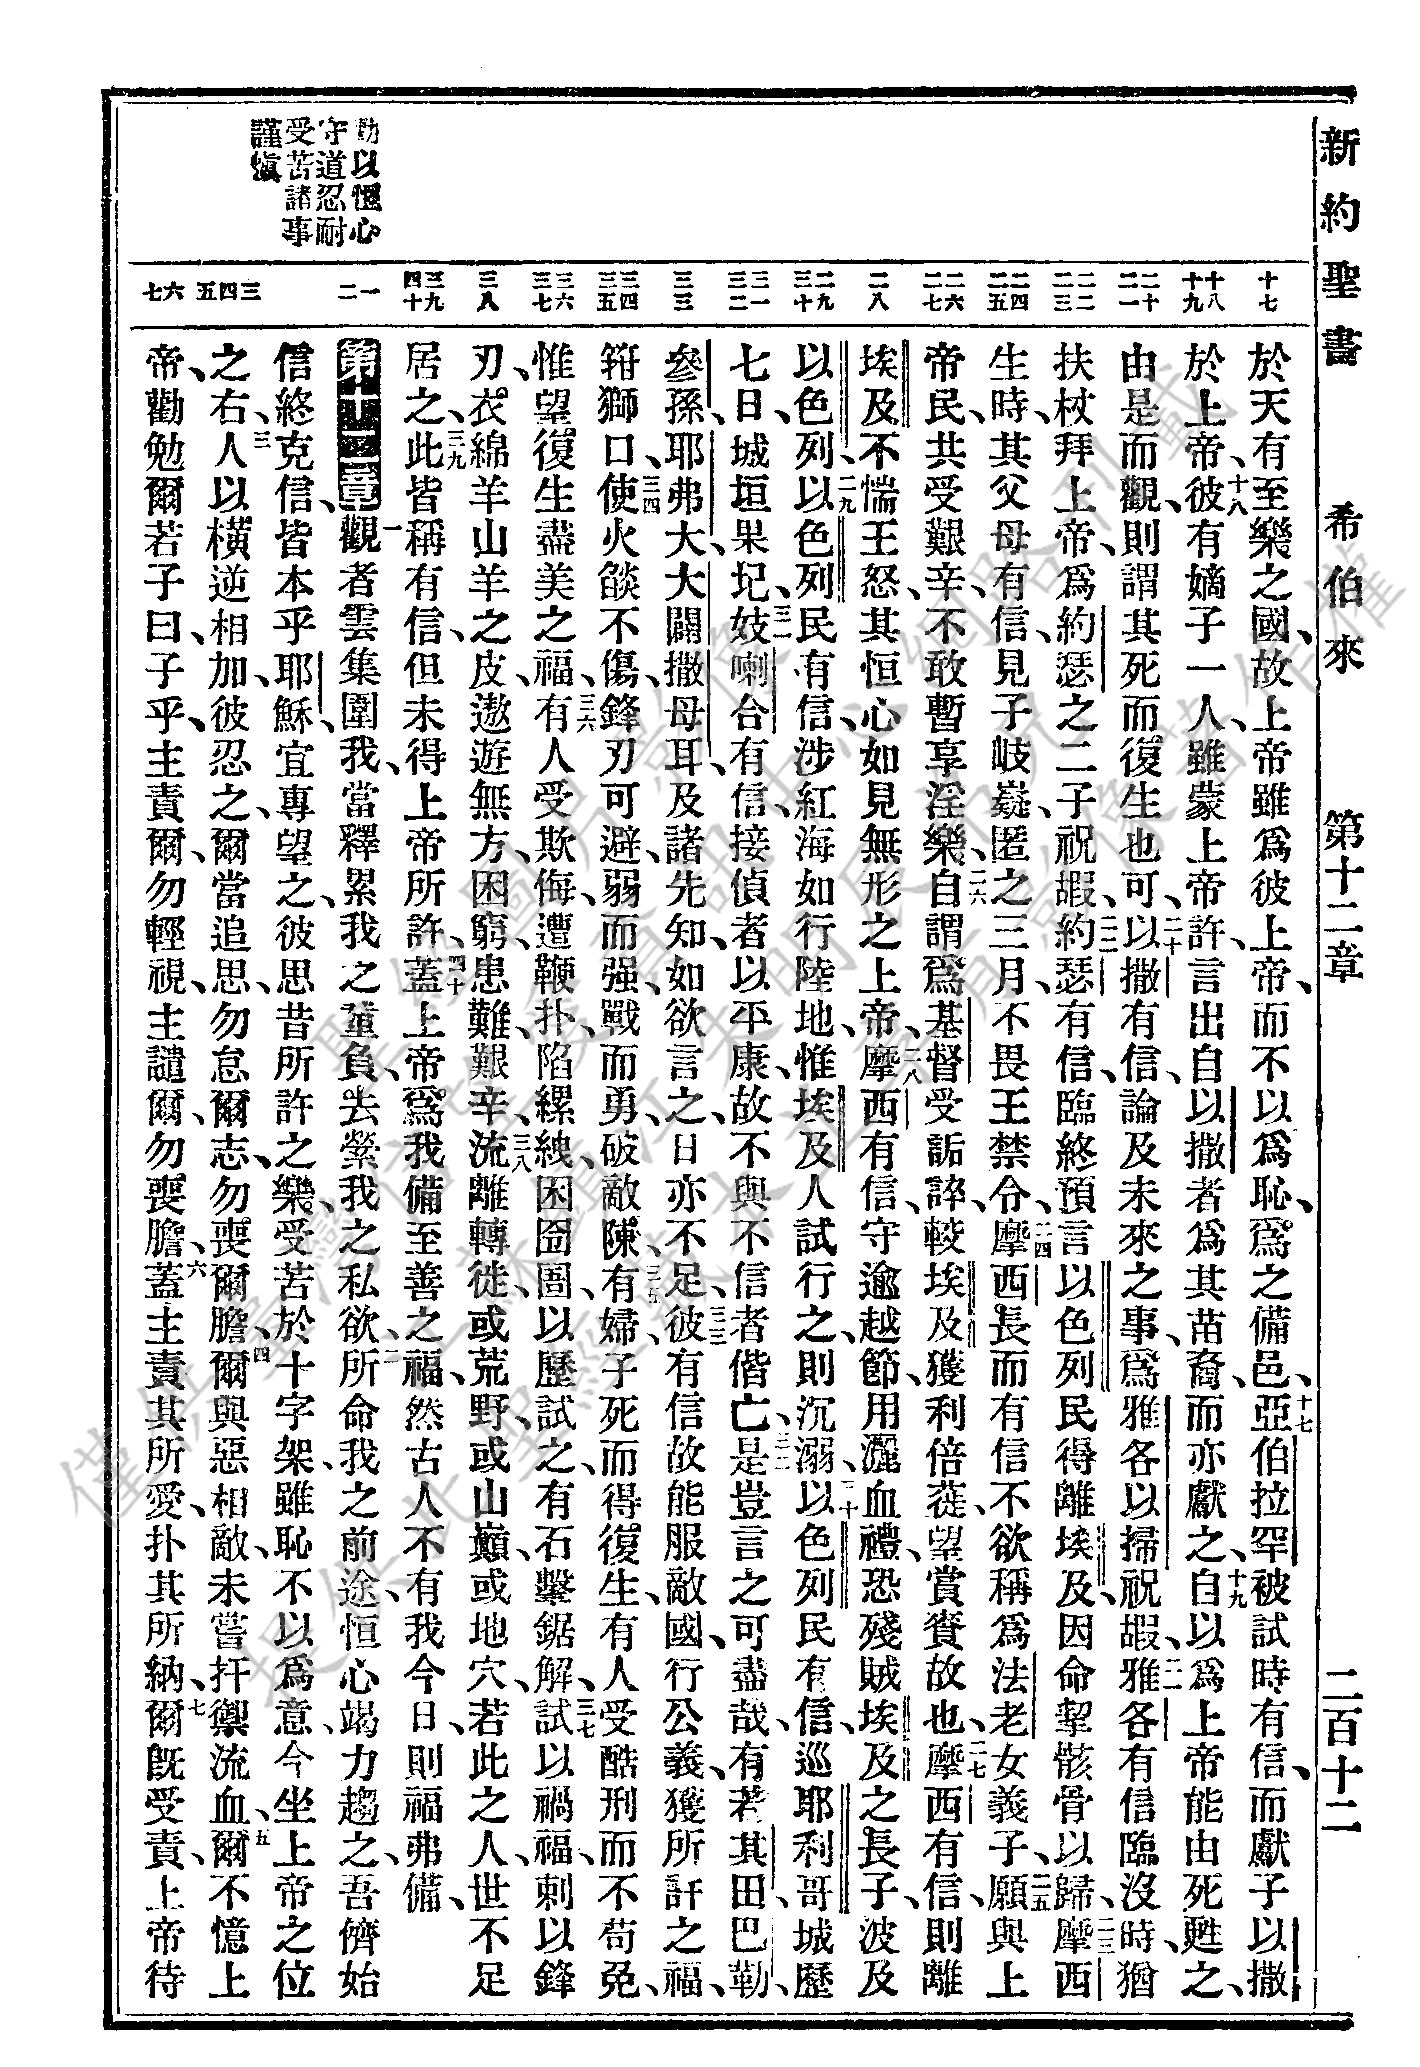 新約聖書 希伯來 第十二章 二百十二
勸以恆心
守道忍耐
受苦諸事
謹愼
十七
十八 十九
二十 二一
二二 二三
二四 二五
二六 二七
二八
二九 三十
三一 三二
三三
三四 三五
三六 三七
三八
三九 四十
一 二
三 四 五
六 七
於天有至樂之國、故上帝雖爲彼上帝、而不以爲恥、爲之備邑、十七亞伯拉罕被試時有信、而獻子以撒
於上帝、十八彼有嫡子一人、雖蒙上帝許、言出自以撒者爲其苗裔、而亦獻之、十九自以爲上帝能由死甦之、
由是而觀、則謂其死而復生也可、二十以撒有信、論及未來之事、爲雅各以掃祝嘏、二一雅各有信、臨沒時、猶
扶杖拜上帝、爲約瑟之二子祝嘏、二二約瑟有信、臨終、預言以色列民得離埃及、因命挈骸骨以歸、二三摩西
生時、其父母有信、見子岐嶷、匿之三月、不畏王禁令、二四摩西長而有信、不欲稱爲法老女義子、二五願與上
帝民、共受艱辛、不敢暫享淫樂、二六自謂爲基督受詬誶、較埃及獲利倍蓰、望賞賚故也、二七摩西有信、則離
埃及、不惴王怒、其恒心如見無形之上帝、二八摩西有信、守逾越節、用灑血禮、恐殘賊埃及之長子、波及
以色列、二九以色列民有信、涉紅海如行陸地、惟埃及人試行之、則沉溺、三十以色列民有信、巡耶利哥城、歷
七日、城垣果圮、三一妓喇合有信、接偵者以平康、故不與不信者偕亡、三二是豈言之可盡哉、有若其田、巴勒、
參孫、耶弗大、大闢、撒母耳、及諸先知、如欲言之、日亦不足、三三彼有信、故能服敵國、行公義、獲所許之福、
箝獅口、三四使火燄不傷、鋒刃可避、弱而强、戰而勇、破敵陳、三五有婦、子死而得復生、有人受酷刑而不苟免、
惟望復生盡美之福、三六有人受欺侮、遭鞭扑、陷縲絏、困囹圄、以歷試之、有石擊鋸解、三七試以禍福、刺以鋒
刃、衣綿羊山羊之皮、遨遊無方、困窮、患難、艱辛、三八流離轉徙、或荒野、或山巓、或地穴、若此之人、世不足
居之、三九此皆稱有信、但未得上帝所許、四十蓋上帝爲我備至善之福、然古人不有我今日、則福弗備、
第十二章 一觀者雲集圍我、當釋累我之重負、去縈我之私欲、二所命我之前途、恒心竭力趨之、吾儕始
信終克信、皆本乎耶穌、宜專望之、彼思昔所許之樂、受苦於十字架、雖恥不以爲意、今坐上帝之位
之右、三人以橫逆相加、彼忍之、爾當追思、勿怠爾志、勿喪爾膽、四爾與惡相敵、未嘗扞禦流血、五爾不憶上
帝勸勉爾若子曰、子乎、主責爾、勿輕視、主譴爾、勿喪膽、六蓋主責其所愛、扑其所納、七爾旣受責、上帝待